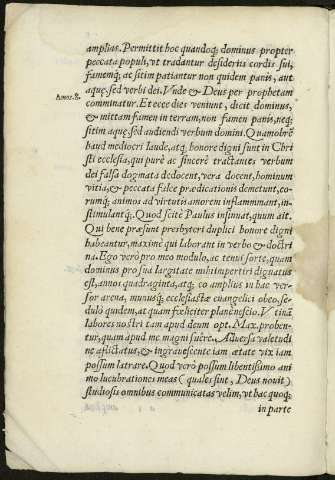 amplias. Permittit hoc quandoq; dominus propter
peccata populi, vt tradantur desiderijs cordis sui,
famemq́; ac sitim patiantur non quidem panis, aut
aquę, sed verbi dei. Vnde & Deus per prophetam
Amos.8.
comminatur. Et ecce dies veniunt, dicit dominus,
& mittam famen in terram, non famen panis, neq;
sitim aquę, sed audiendi verbum domini. Quamobrē
haud mediocri laude, atq; honore digni sunt in Chri
sti ecclesia, qui purè ac sincerè tractantes verbum
dei falsa dogmata dedocent, vera docent, hominum
vitia, & peccata falce prædicationis demetunt, eo-
rumq́; animos ad virtutis amorem inflammant, in-
stimulantq́;. Quod scitè Paulus insinuat, quum ait.
Qui bene præsunt presbyteri duplici honore digni
habeantur, maximè qui laborant in verbo & doctri
na. Ego verò pro meo modulo, ac tenui sorte, quam
dominus pro sua largitate mihi impertiri dignatus
est, annos quadraginta, atq; eo amplius in hac ver-
sor arena, munusq́; ecclesiastæ euangelici obeo, se-
dulò quidem, at quam fœliciter planè nescio. Vtinā
labores nostri tam apud deum opt. Max. proben-
tur, quam apud me magni sunt. Aduersa valetudi
ne afflictatus, & ingrauescente iam ætate vix iam
possum latrare. Quod verò possum libentissimo ani
mo lucubrationes meas (quales sint, Deus nouit)
studiosis omnibus communicatas velim, vt hac quoq;
in parte